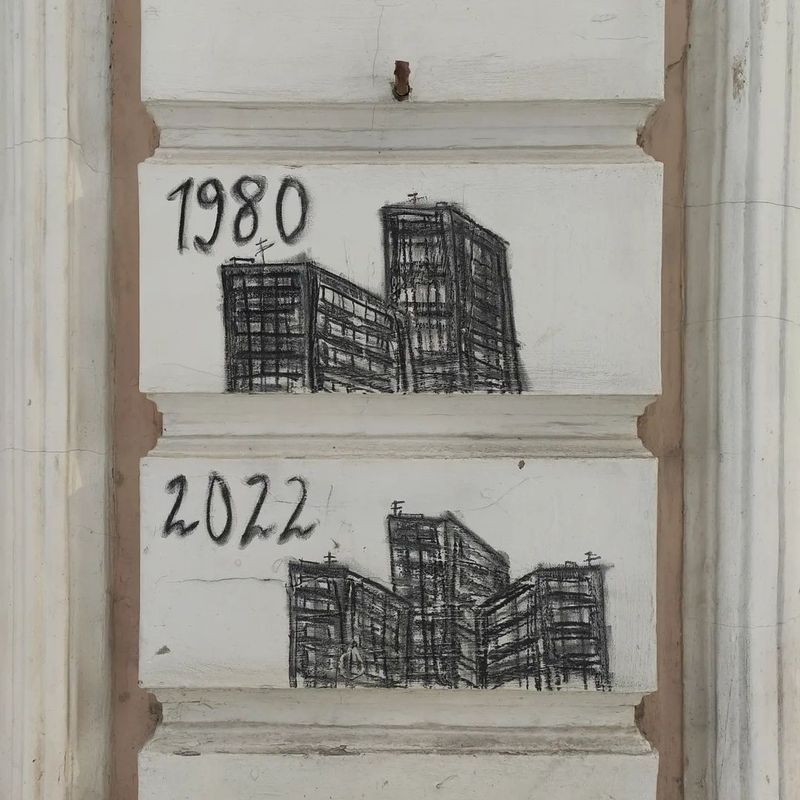 1980
2022